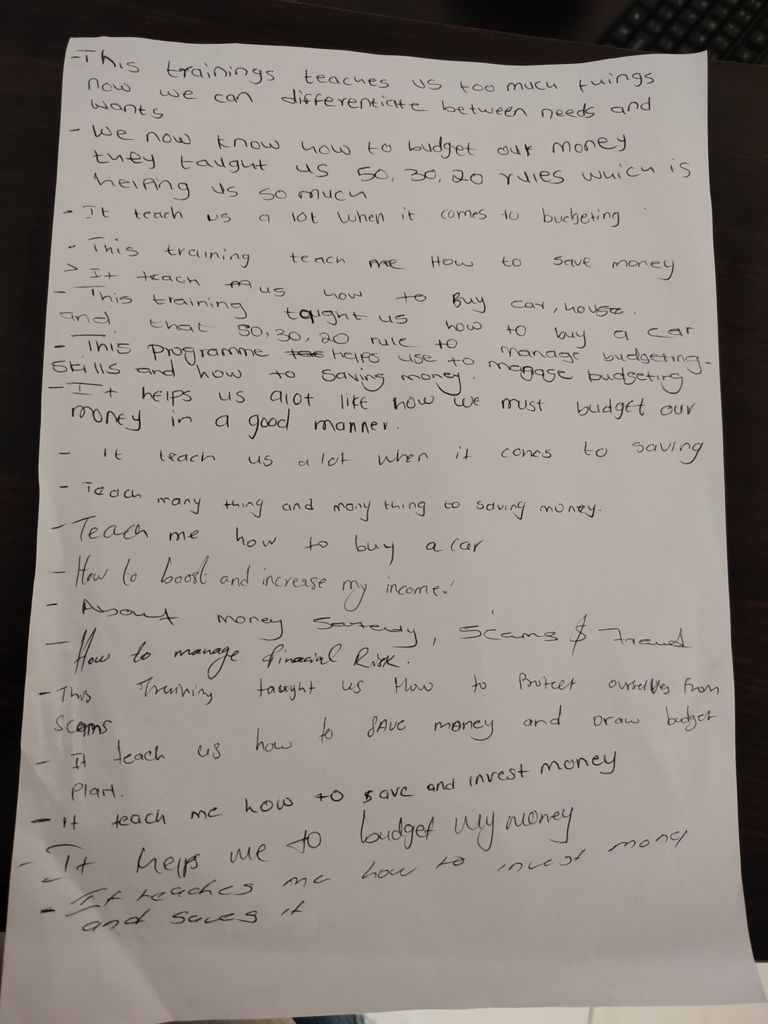 -This trainings teaches us too much things
now we can differentiate between needs and
wants
- We now know how to budget our money
they taught us 50,30,20 rules which is
helping us so much
- It teach us a lot when it comes to bucbeting
- This training teach me How to save money
> It teach us how to Buy car, house.
- This training taught us how to buy a car
and that 50,30,20 rule to manage budgeting.
- This programme helps use to manage budgeting
skills and how to saving money.
- It helps us alot like how we must budget our
money in a good manner.
- It teach us a lot when it comes to saving
- Teach many thing and many thing to saving money.
- Teach me how to buy a car
- How to boost and increase my income.
- About money , Scams $ Fraud
- How to manage finacial Risk.
- This Training taught us How to Protect ourselves from
Scams
- It teach us how to SAVE money and Draw budget
Plan.
- It teach me how to save and invest money
- It helps me to budget my money
- It teaches me how to invest money
and saves it